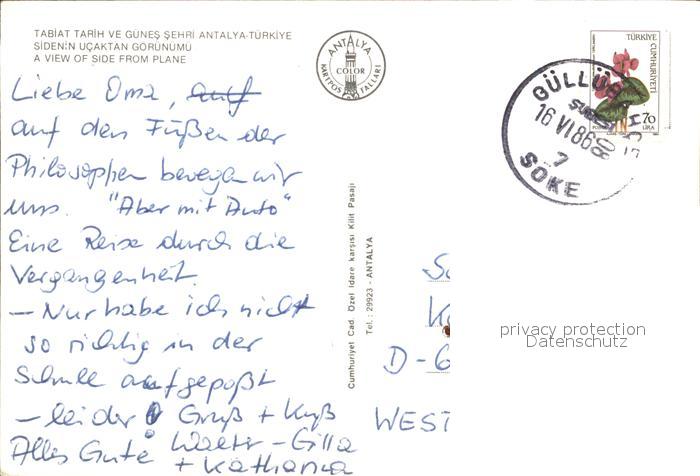 TABİAT TARİH VE GÜNEŞ ŞEHRİ ANTALYA-TÜRKİYE
SİDENİN UÇAKTAN GÖRÜNÜMÜ
A VIEW OF SIDE FROM PLANE
ANTALYA
COLOR
KARTPOSTALLARI
TÜRKİYE
CUMHURİYETİ
70
LİRA
GÜLLÜB
ŞUBESİ
16 VI 86
7
SÖKE
Liebe Oma, auf
auf den Füßen der
Philosophen bewegen wir
uns. "Aber mit Auto"
Eine Reise durch die
Vergangenheit.
- Nur habe ich nicht
so richtig in der
Schule aufgepaßt
- leider Gruß + Kuß
Alles Gute Walter - Gilla
+ Katharina
Cumhuriyet Cad. Özel İdare karşısı Kilit Pasajı
Tel.: 29923 - ANTALYA
D-6
WEST
privacy protection
Datenschutz